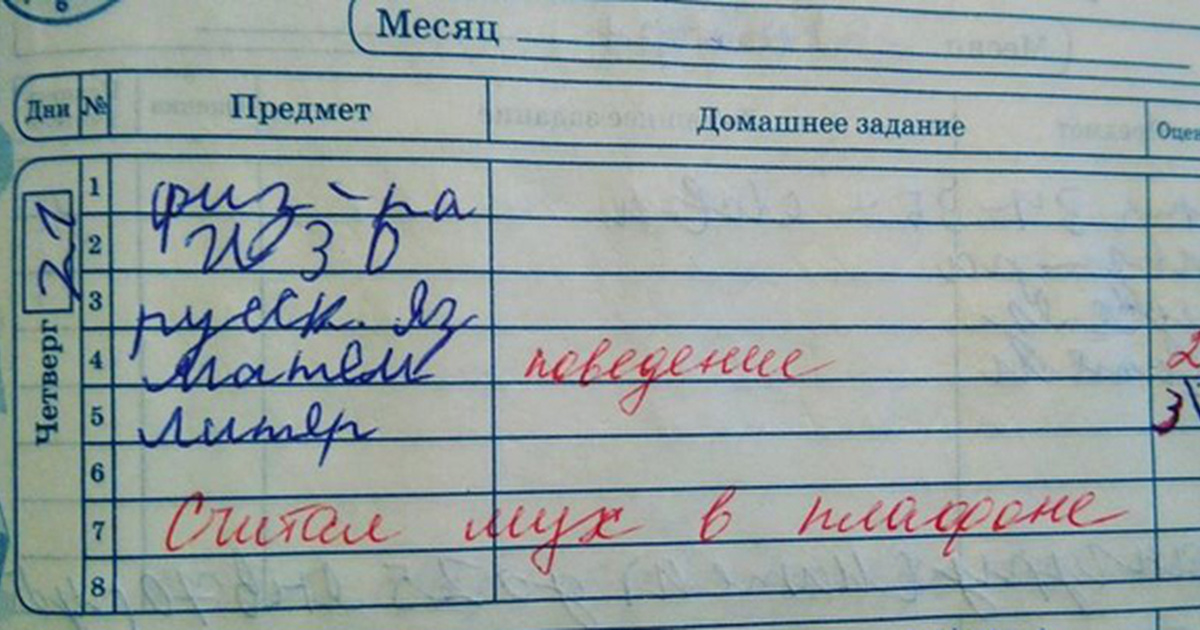 Месяц
Дни № Предмет Домашнее задание Оцен
Четверг 21
1 физ-ра
2 ИЗО
3 русск. яз
4 матем поведение 2
5 литер 3
6
7 Считал мух в плафоне
8